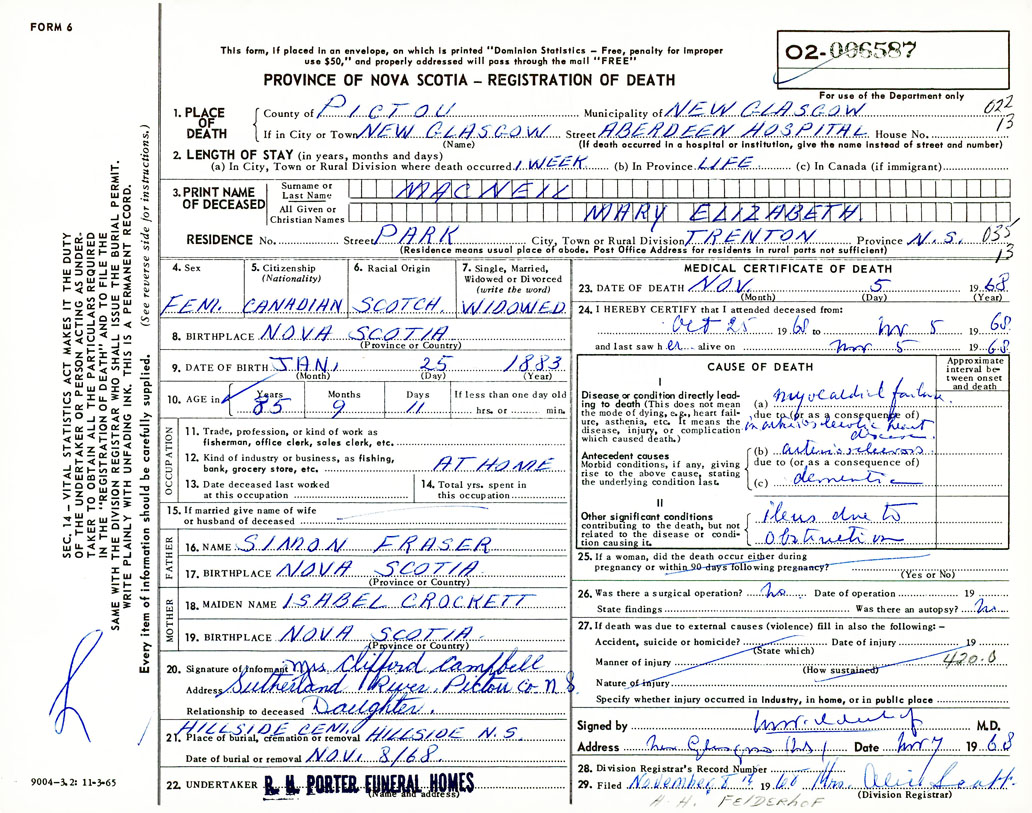 FORM 6
This form, if placed in an envelope, on which is printed "Dominion Statistics – Free, penalty for improper
use $50," and properly addressed will pass through the mail "FREE"
PROVINCE OF NOVA SCOTIA – REGISTRATION OF DEATH
02-006587
For use of the Department only
1. PLACE OF DEATH County of PICTOU Municipality of NEW GLASGOW 022
If in City or Town NEW GLASGOW Street ABERDEEN HOSPITAL House No. 13
(Name) (If death occurred in a hospital or institution, give the name instead of street and number)
2. LENGTH OF STAY (in years, months and days)
(a) In City, Town or Rural Division where death occurred 1 WEEK (b) In Province LIFE (c) In Canada (if immigrant)
3. PRINT NAME OF DECEASED Surname or Last Name MACNEIL
All Given or Christian Names MARY ELIZABETH
RESIDENCE No. Street PARK City, Town or Rural Division TRENTON Province N.S. 035
(Residence means usual place of abode. Post Office Address for residents in rural parts not sufficient) 13
4. Sex 5. Citizenship (Nationality) 6. Racial Origin 7. Single, Married, Widowed or Divorced (write the word)
FEM. CANADIAN SCOTCH WIDOWED
8. BIRTHPLACE NOVA SCOTIA
(Province or Country)
9. DATE OF BIRTH JAN. 25 1883
(Month) (Day) (Year)
10. AGE in Years Months Days If less than one day old
85 9 11 hrs. or min.
OCCUPATION
11. Trade, profession, or kind of work as
fisherman, office clerk, sales clerk, etc.
12. Kind of industry or business, as fishing,
bank, grocery store, etc. AT HOME
13. Date deceased last worked at this occupation 14. Total yrs. spent in this occupation
15. If married give name of wife
or husband of deceased
FATHER
16. NAME SIMON FRASER
17. BIRTHPLACE NOVA SCOTIA
(Province or Country)
MOTHER
18. MAIDEN NAME ISABEL CROCKETT
19. BIRTHPLACE NOVA SCOTIA
(Province or Country)
20. Signature of informant Mrs Clifford Campbell
Address Sutherland River Pictou Co. N S.
Relationship to deceased Daughter.
HILLSIDE CEM. HILLSIDE N.S.
21. Place of burial, cremation or removal
Date of burial or removal NOV. 8/68
22. UNDERTAKER R. H. PORTER FUNERAL HOMES
(Name and address)
MEDICAL CERTIFICATE OF DEATH
23. DATE OF DEATH NOV. 5 1968
(Month) (Day) (Year)
24. I HEREBY CERTIFY that I attended deceased from:
Oct 25 1968 to Nov 5 1968
and last saw her alive on Nov 5 1968
CAUSE OF DEATH
Approximate interval between onset and death
I
Disease or condition directly leading to death (This does not mean the mode of dying, e.g., heart failure, asthenia, etc. It means the disease, injury, or complication which caused death.)
(a) myocardial failure
due to (or as a consequence of)
arteriosclerotic heart
disease
Antecedent causes
Morbid conditions, if any, giving rise to the above cause, stating the underlying condition last.
(b) arteriosclerosis
due to (or as a consequence of)
(c) dementia
II
Other significant conditions
contributing to the death, but not related to the disease or condition causing it.
ileus due to
obstruction
25. If a woman, did the death occur either during
pregnancy or within 90 days following pregnancy?
(Yes or No)
26. Was there a surgical operation? No Date of operation 19
State findings Was there an autopsy? No
27. If death was due to external causes (violence) fill in also the following:–
Accident, suicide or homicide? Date of injury 19
(State which)
Manner of injury 420.0
(How sustained)
Nature of injury
Specify whether injury occurred in Industry, in home, or in public place
Signed by M.D.
Address New Glasgow N.S. Date Nov 7 1968
28. Division Registrar's Record Number
29. Filed November 8th 1968 Mrs.
(Division Registrar)
H. H. FELDERHOF
SEC. 14 – VITAL STATISTICS ACT MAKES IT THE DUTY
OF THE UNDERTAKER OR PERSON ACTING AS UNDER-
TAKER TO OBTAIN ALL THE PARTICULARS REQUIRED
IN THE "REGISTRATION OF DEATH" AND TO FILE THE
SAME WITH THE DIVISION REGISTRAR WHO SHALL ISSUE THE BURIAL PERMIT.
WRITE PLAINLY WITH UNFADING INK. THIS IS A PERMANENT RECORD.
Every item of information should be carefully supplied. (See reverse side for instructions.)
9004–3.2: 11-3-65